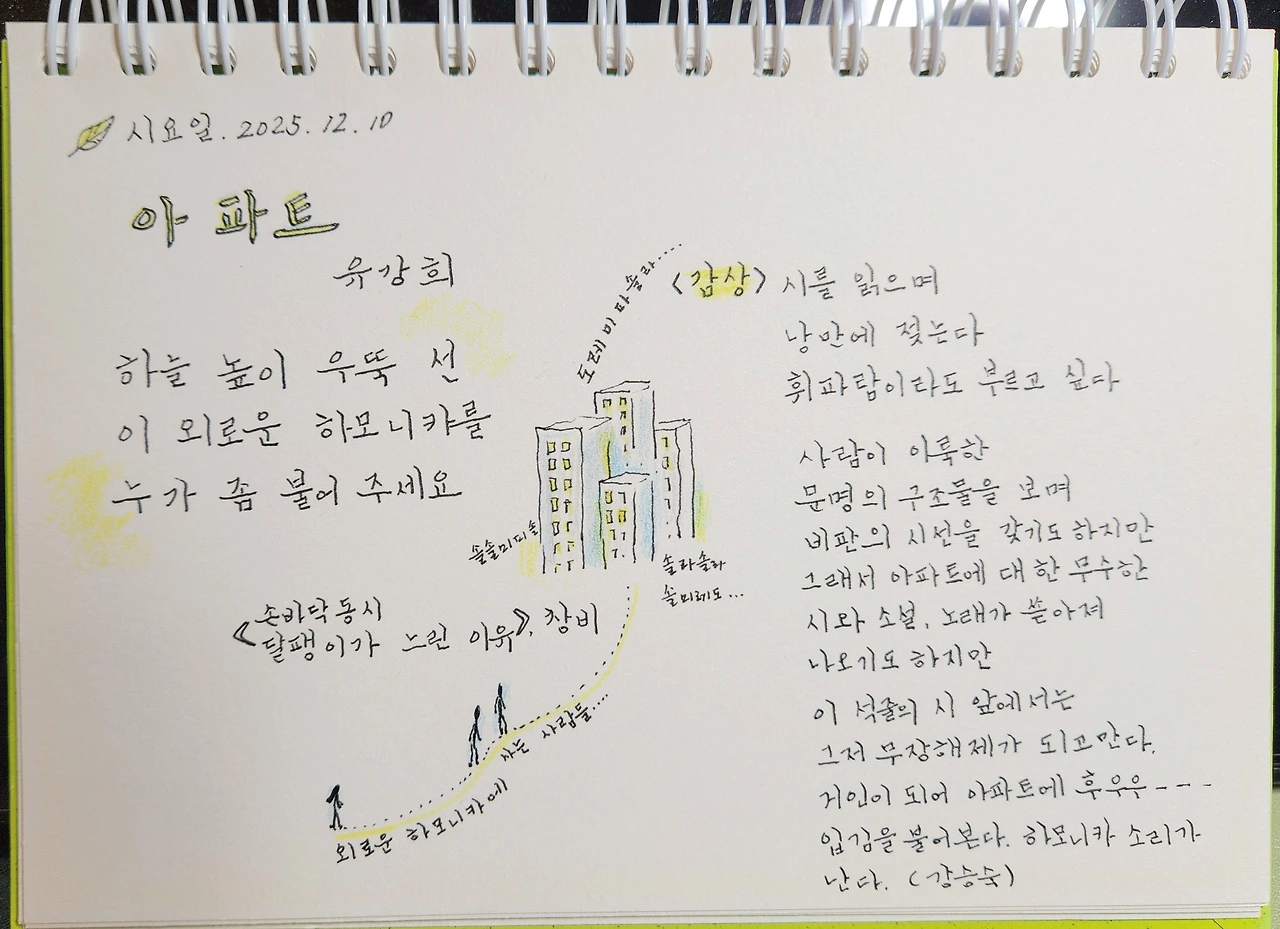 시요일. 2025. 12. 10
아파트
유강희
하늘 높이 우뚝 선
이 외로운 하모니카를
누가 좀 불어 주세요
도레미파솔라....
솔솔미미솔
솔라솔라
솔미레도...
《손바닥 동시
달팽이가 느린 이유》, 창비
외로운 하모니카에 사는 사람들....
<감상> 시를 읽으며
낭만에 젖는다
휘파람이라도 부르고 싶다
사람이 이룩한
문명의 구조물을 보며
비판의 시선을 갖기도 하지만
그래서 아파트에 대한 무수한
시와 소설, 노래가 쏟아져
나오기도 하지만
이 석줄의 시 앞에서는
그저 무장해제가 되고만다.
거인이 되어 아파트에 후우우----
입김을 불어본다. 하모니카 소리가
난다. (강승숙)